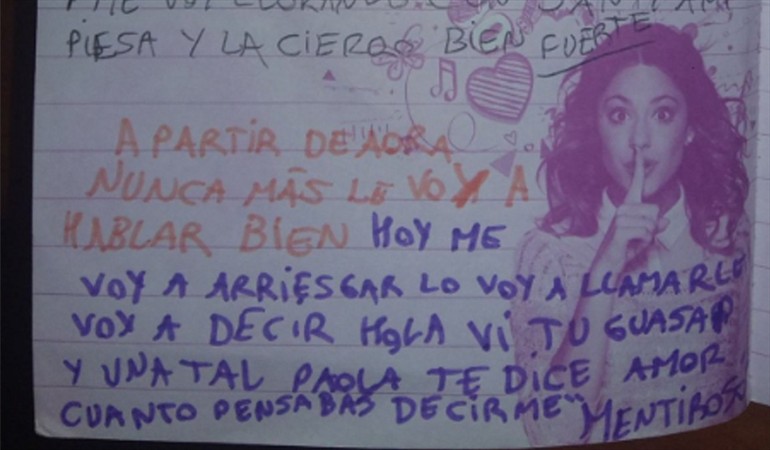 VOY LLORANDO CON
PIESA Y LA CIERRO BIEN FUERTE
A PARTIR DE AORA
NUNCA MÁS LE VOY A
HABLAR BIEN HOY ME
VOY A ARRIESGAR LO VOY A LLAMARLE
VOY A DECIR HOLA VI TU GUASAP
Y UNA TAL PAOLA TE DICE AMOR
CUANTO PENSABAS DECIRME" MENTIROSO